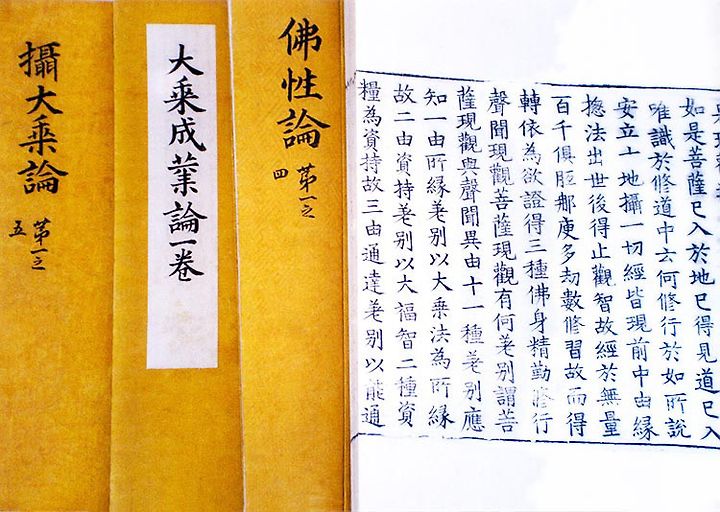 如是菩薩已入於地已得見道已入
唯識於修道中云何修行於如所說
安立十地攝一切經皆現前中由緣
揔法出世後得止觀智故經於無量
百千俱胝那庾多劫數修習故而得
轉依為欲證得三種佛身精勤修行
聲聞現觀菩薩現觀有何差別謂菩
薩現觀與聲聞異由十一種差別應
知一由所緣差別以大乘法為所緣
故二由資持差別以大福智二種資
糧為資持故三由通達差別以能通
佛性論 第一之四
大乘成業論一卷
攝大乘論 第一之五